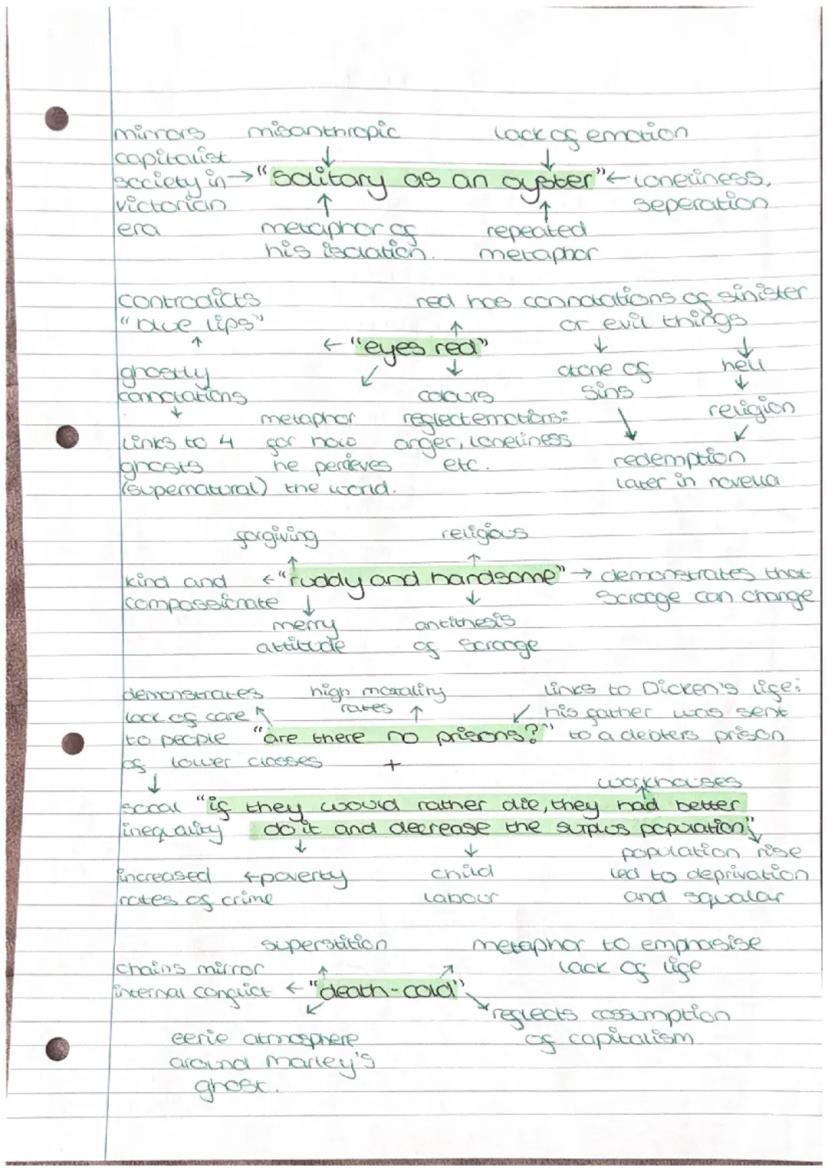 mirrors misanthropic lack of emotion
capitalist
society in → "solitary as an oyster" ← loneliness,
victorian seperation
era metaphor of repeated
his isolation. metaphor
contradicts red has connotations of sinister
"blue lips" or evil things
← "eyes red"
ghostly atone of hell
connotations colours sins
metaphor reflect emotions: religion
links to 4 for how anger, loneliness
ghosts he percieves etc. redemption
(supernatural) the world. later in novella
forgiving religious
kind and ← "ruddy and handsome" → demonstrates that
compassionate scrooge can change
merry antithesis
attitude of scrooge
demonstrates high mortality links to Dicken's life:
lack of care rates his father was sent
to people "are there no prisons?" to a debters prison
of lower classes +
workhouses
social "if they would rather die, they had better
inequality do it and decrease the surplus population"
population rise
increased ← poverty child led to deprivation
rates of crime labour and squalar
superstition metaphor to emphasise
chains mirror lack of life
internal conflict ← "death-cold"
reflects consumption
eerie atmosphere of capitalism
around Marley's
ghost.